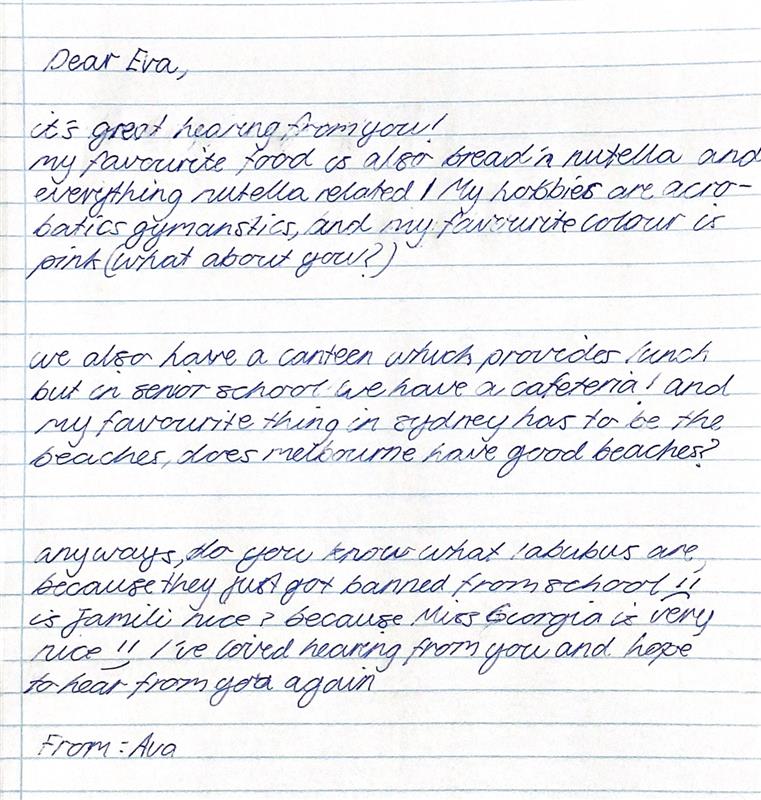 Dear Eva,
it's great hearing from you!
my favourite food is also bread'n nutella and
everything nutella related! My hobbies are acro-
batics gymanstics, and my favourite colour is
pink (what about you?)
we also have a canteen which provides lunch
but in senior school we have a cafeteria! and
my favourite thing in sydney has to be the
beaches, does melbourne have good beaches?
anyways, do you know what labubus are,
because they just got banned from school!!
is Jamili nice? because Miss Georgia is very
nice!! I've loved hearing from you and hope
to hear from you again
From: Ava